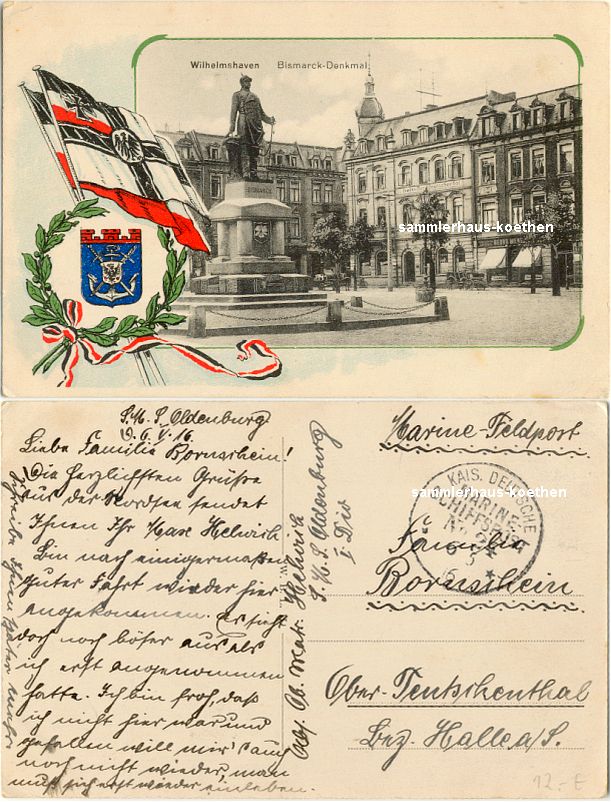 Wilhelmshaven Bismarck-Denkmal
BISMARCK
sammlerhaus-koethen
sammlerhaus-koethen
S.M.S. Oldenburg
d. 6. V. 16.
Liebe Familie Bornschein!
Die herzlichsten Grüße
aus der Nordsee sendet
Ihnen Ihr Max Helwich
Bin nach einigermaßen
guter Fahrt wieder hier
angekommen. Es sieht
doch noch böser aus als
ich erst angenommen
hatte. Ich bin froh, daß
ich nicht hier war und
gefallen will mir's auch
noch nicht wieder, man
muß sich erst wieder einleben.
Schreibe Ihnen später mehr
Abs. Ob. Matr. Helwich
S.M.S. Oldenburg
I. Div
Marine-Feldpost
KAIS. DEUTSCHE
MARINE-
SCHIFFSPOST
No
sammlerhaus-koethen
Familie
Bornschein
Ober-Teutschenthal
Bez. Halle a/S.
12.-E